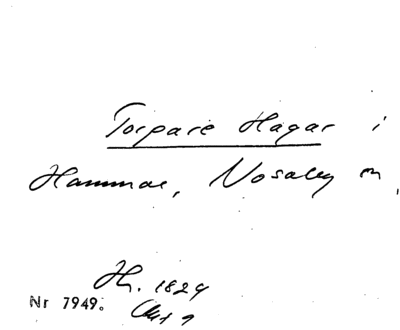 Torpare Hagar i
Hammar, Nosaby sn,
Hh. 1824
Nr 7949.